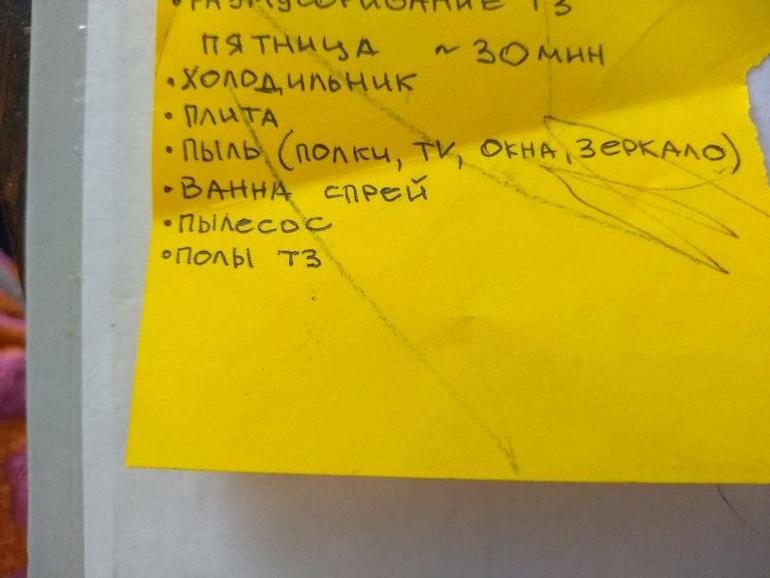 • РАЗМУСОРИВАНИЕ ТЗ
ПЯТНИЦА ~ 30 МИН
• ХОЛОДИЛЬНИК
• ПЛИТА
• ПЫЛЬ (ПОЛКИ, TV, ОКНА, ЗЕРКАЛО)
• ВАННА СПРЕЙ
• ПЫЛЕСОС
• ПОЛЫ ТЗ